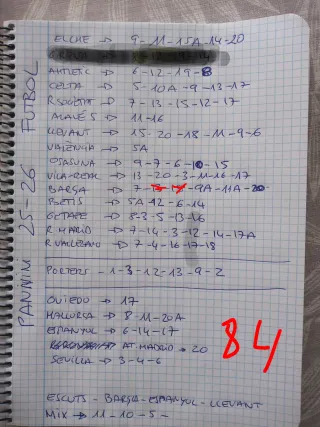 PANINI 25-26 FUTBOL
ELCHE → 9-11-15A-14-20
ATHLETIC → 6-12-19-8
CELTA → 5-10A-9-13-17
R SOCIETAT → 7-13-15-12-17
ALAVES → 11-16
LLEVANT → 15-20-18-11-9-6
VALENCIA → 5A
OSASUNA → 9-7-6-10-15
VILA-REAL → 13-20-3-11-16-17
BARÇA → 7-9A-11A-20
BETIS → 5A-12-6-14
GETAFE → 8-3-5-13-16
R MADRID → 7-14-3-12-14-17A
R. VALLECANO → 7-4-16-17-18
PORTERS - 1-3-12-13-9-2
OVIEDO → 17
MALLORCA → 8-11-20A
ESPANYOL → 6-14-17
AT. MADRID → 20
SEVILLA → 3-4-6
84
ESCUTS - BARÇA-ESPANYOL-LLEVANT
MIX → 11-10-5-